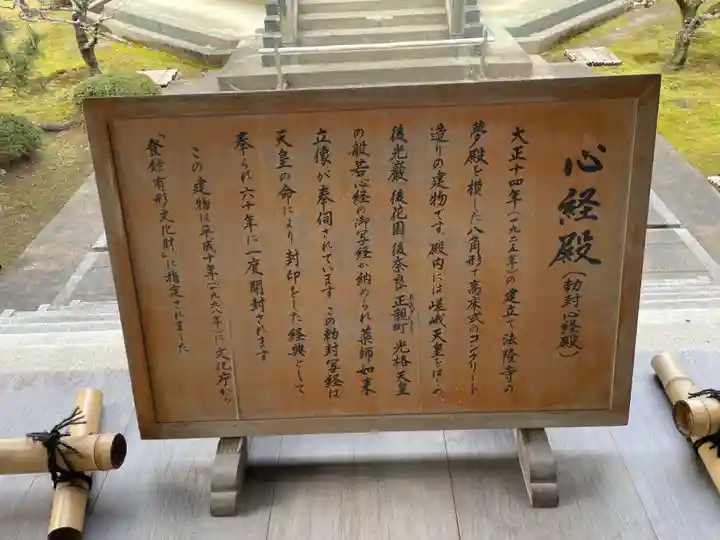 心経殿（勅封心経殿）
大正十四年（一九二五年）の建立で法隆寺の
夢殿を模した八角形で高床式のコンクリート
造りの建物です。殿内には嵯峨天皇をはじめ
後光嚴 後花園 後奈良 正親町 光格天皇
の般若心経の御写経が納められ薬師如来
立像が奉伺されています この勅封写経は
天皇の命により封印をした経典として
奉られ六十年に一度開封されます
この建物は平成十年（一九九八年）に文化庁から
「登録有形文化財」に指定されました